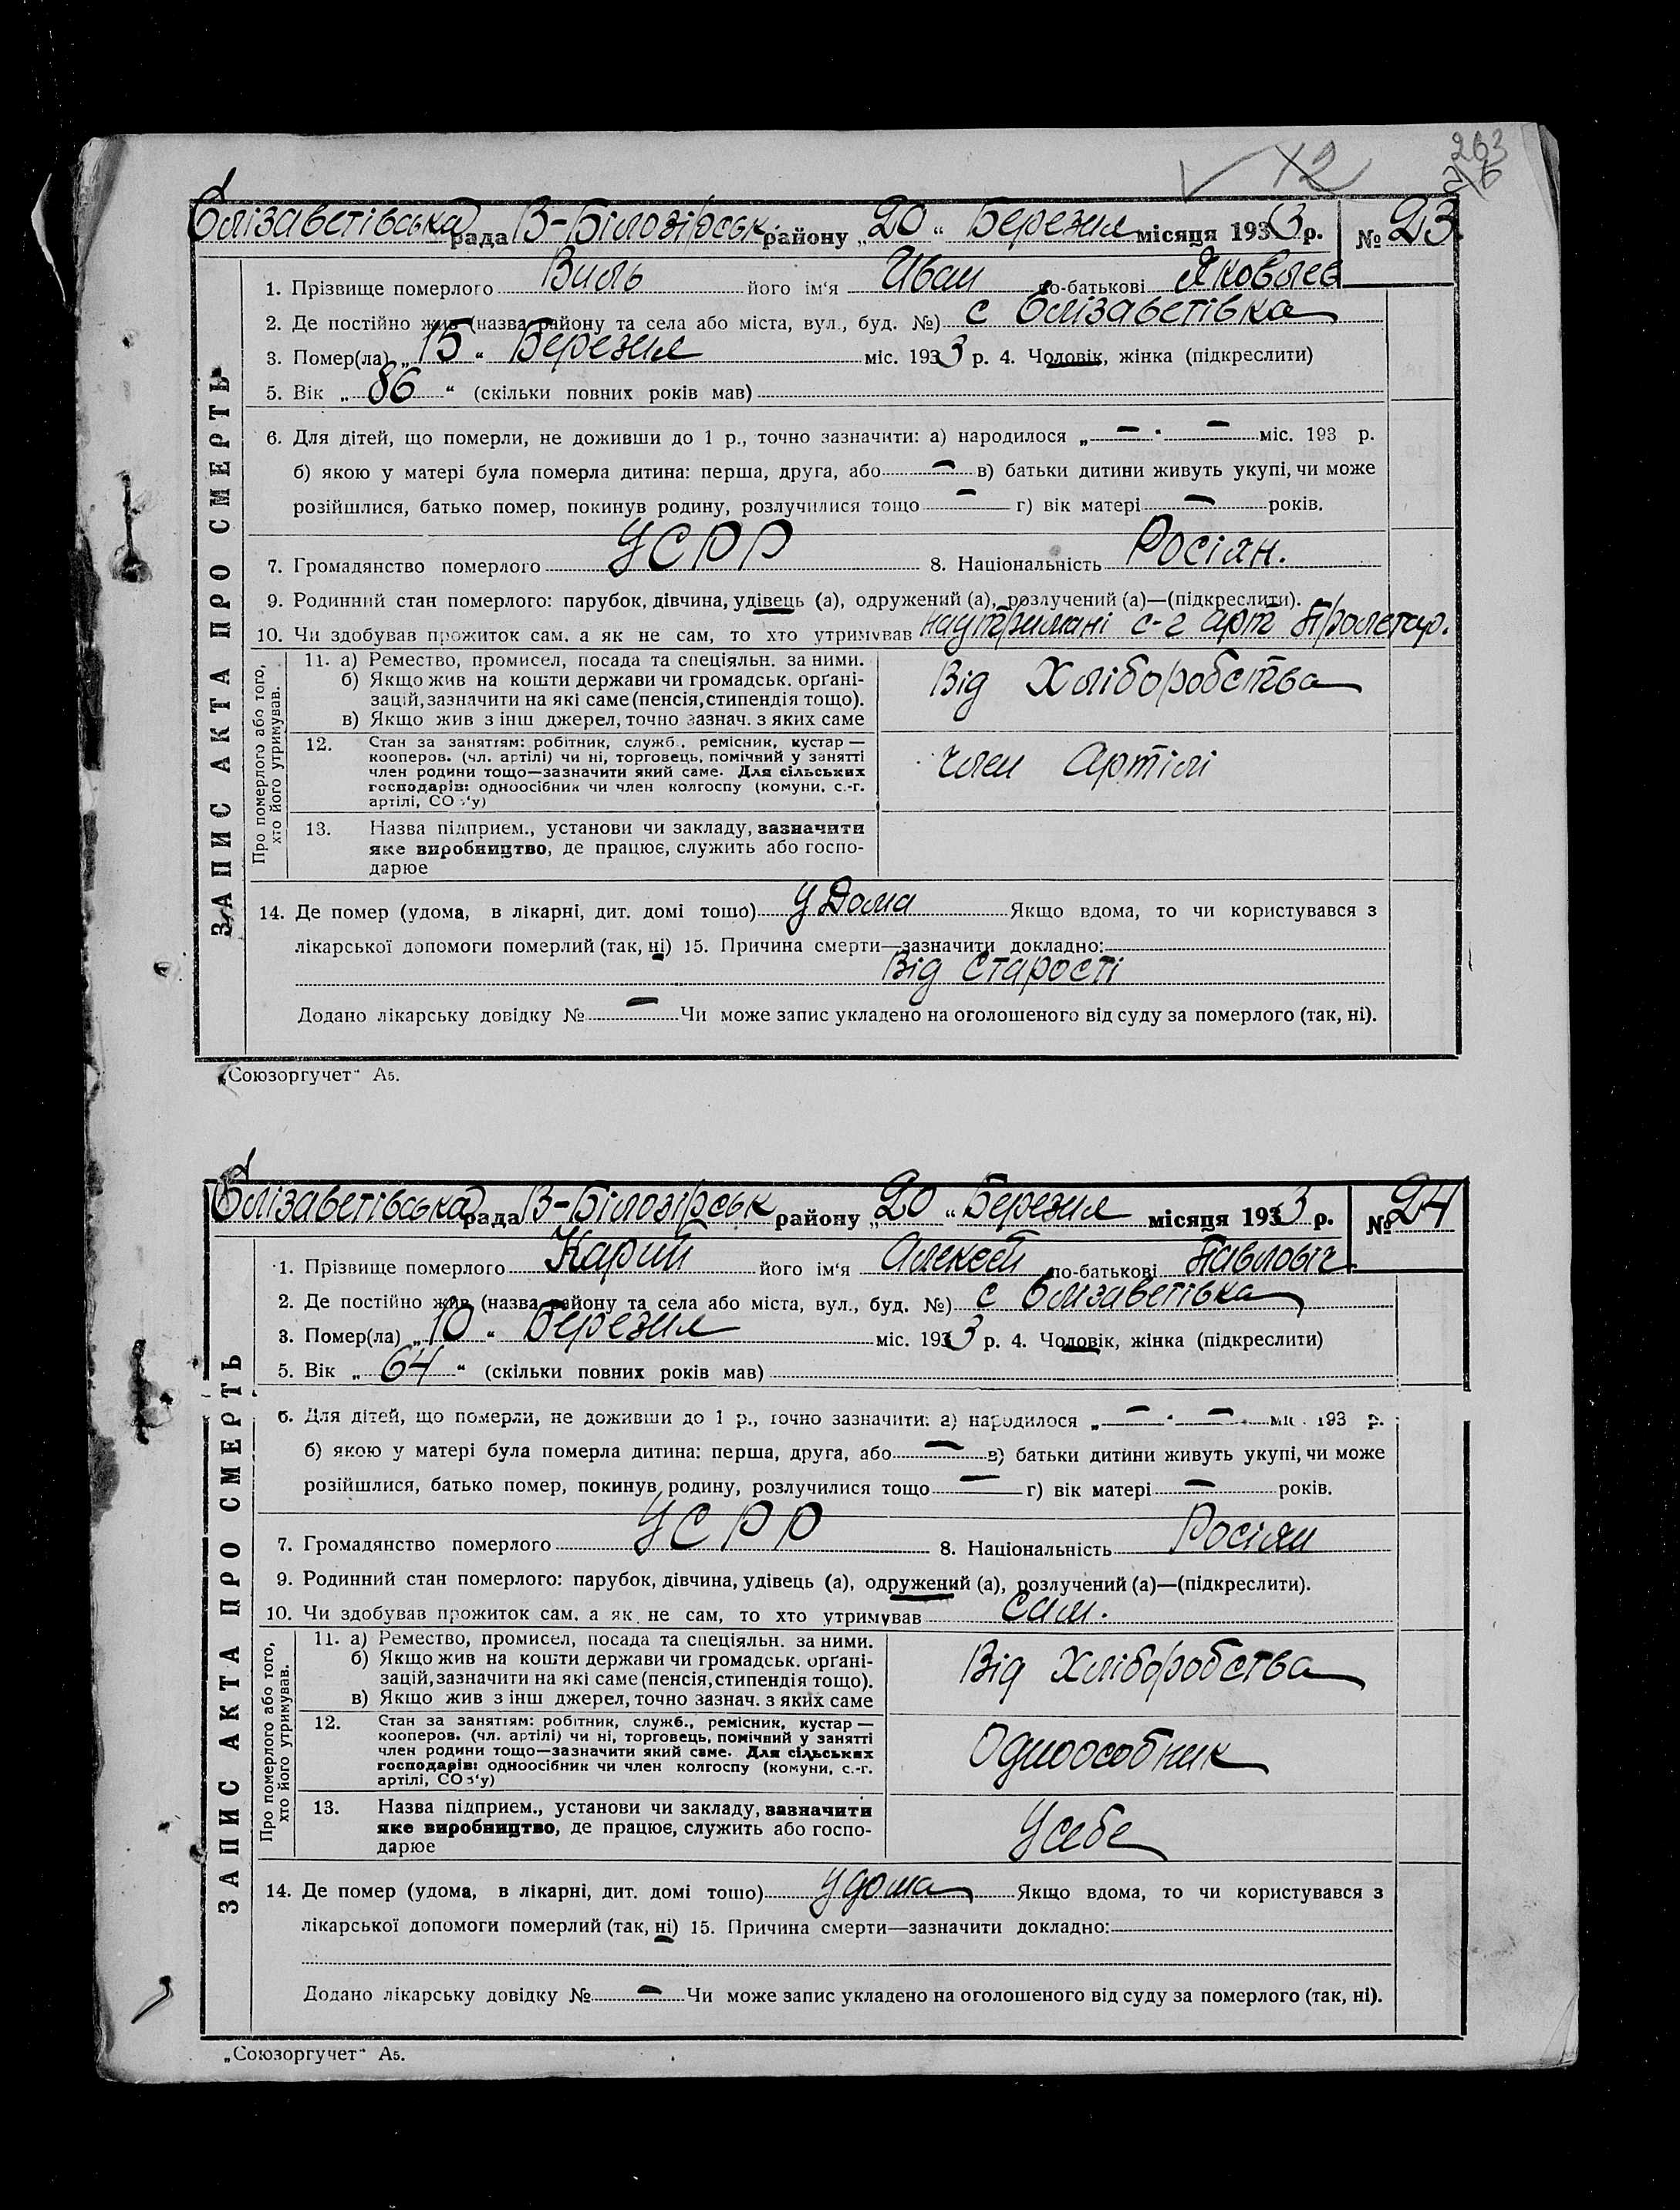 12 263
Єлізаветівська рада В-Білозірськ району „20“ Березня місяця 1933 р. № 23.
ЗАПИС АКТА ПРО СМЕРТЬ
1. Прізвище померлого Виль його ім'я Иван по-батькові Яковлев
2. Де постійно жив (назва району та села або міста, вул., буд. №) с Єлізаветівка
3. Помер(ла) „15“ Березня міс. 1933 р. 4. Чоловік, жінка (підкреслити)
5. Вік „86“ (скільки повних років мав)
6. Для дітей, що померли, не доживши до 1 р., точно зазначити: а) народилося „—“ — міс. 193 р.
б) якою у матері була померла дитина: перша, друга, або — в) батьки дитини живуть укупі, чи може
розійшлися, батько помер, покинув родину, розлучилися тощо — г) вік матері — років.
7. Громадянство померлого УСРР 8. Національність Росіян.
9. Родинний стан померлого: парубок, дівчина, удівець (а), одружений (а), розлучений (а)—(підкреслити).
10. Чи здобував прожиток сам, а як не сам, то хто утримував наутримані с-г арт Пролетар.
Про померлого або того, хто його утримував.
11. а) Ремество, промисел, посада та спеціяльн. за ними.
б) Якщо жив на кошти держави чи громадськ. орґані-
зацій, зазначити на які саме (пенсія, стипендія тощо).
в) Якщо жив з інш джерел, точно зазнач. з яких саме
Від Хліборобства
12. Стан за занятіям: робітник, служб., ремісник, кустар—
кооперов. (чл. артілі) чи ні, торговець, помічний у занятті
член родини тощо—зазначити який саме. Для сільських
господарів: одноосібник чи член колгоспу (комуни, с.-г.
артілі, СО з'у)
член Артілі
13. Назва підприєм., установи чи закладу, зазначити
яке виробництво, де працює, служить або госпо-
дарює
14. Де помер (удома, в лікарні, дит. домі тощо) у Дома Якщо вдома, то чи користувався з
лікарської допомоги померлий (так, ні) 15. Причина смерти—зазначити докладно:
Від старості
Додано лікарську довідку № — Чи може запис укладено на оголошеного від суду за померлого (так, ні).
„Союзоргучет“ А5.
Єлізаветівська рада В-Білозірськ району „20“ Березня місяця 1933 р. № 24
ЗАПИС АКТА ПРО СМЕРТЬ
1. Прізвище померлого Карий його ім'я Алексей по-батькові Павловіч
2. Де постійно жив (назва району та села або міста, вул., буд. №) с Єлізаветівка
3. Помер(ла) „10“ Березня міс. 1933 р. 4. Чоловік, жінка (підкреслити)
5. Вік „64“ (скільки повних років мав)
6. Для дітей, що померли, не доживши до 1 р., точно зазначити: а) народилося „—“ — міс. 193 р.
б) якою у матері була померла дитина: перша, друга, або — в) батьки дитини живуть укупі, чи може
розійшлися, батько помер, покинув родину, розлучилися тощо — г) вік матері — років.
7. Громадянство померлого УСРР 8. Національність Росіян
9. Родинний стан померлого: парубок, дівчина, удівець (а), одружений (а), розлучений (а)—(підкреслити).
10. Чи здобував прожиток сам, а як не сам, то хто утримував сам.
Про померлого або того, хто його утримував.
11. а) Ремество, промисел, посада та спеціяльн. за ними.
б) Якщо жив на кошти держави чи громадськ. орґані-
зацій, зазначити на які саме (пенсія, стипендія тощо).
в) Якщо жив з інш джерел, точно зазнач. з яких саме
Від хліборобства
12. Стан за занятіям: робітник, служб., ремісник, кустар—
кооперов. (чл. артілі) чи ні, торговець, помічний у занятті
член родини тощо—зазначити який саме. Для сільських
господарів: одноосібник чи член колгоспу (комуни, с.-г.
артілі, СО з'у)
Одноособник
13. Назва підприєм., установи чи закладу, зазначити
яке виробництво, де працює, служить або госпо-
дарює
Усебе
14. Де помер (удома, в лікарні, дит. домі тощо) удома Якщо вдома, то чи користувався з
лікарської допомоги померлий (так, ні) 15. Причина смерти—зазначити докладно:
Додано лікарську довідку № — Чи може запис укладено на оголошеного від суду за померлого (так, ні).
„Союзоргучет“ А5.